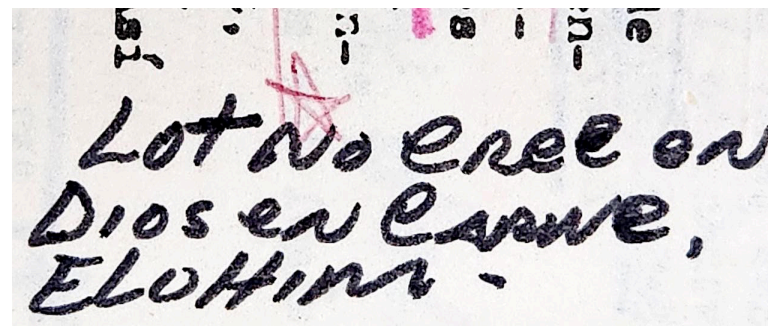 Lot No cree en
Dios en Carne,
ELOHim.-